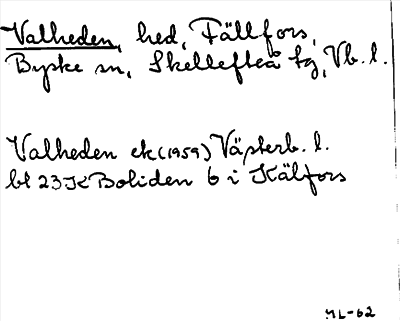 Valheden, hed, Fällfors,
Byske sn, Skellefteå tg, Vb. l.
Valheden ek (1959) Västerb. l.
bl 23K Boliden 6 i Källfors
ML-62